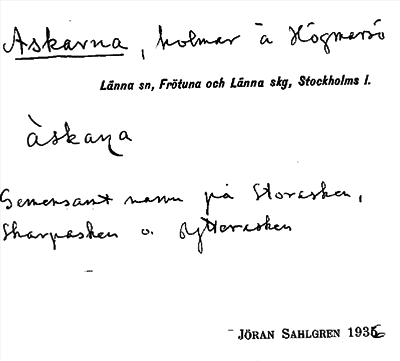 Askarna, holmar å Högmarsö
Länna sn, Frötuna och Länna skg, Stockholms l.
àskaṇa
Gemensamt namn på Storasken,
Skarpasken o. Ytterasken
JÖRAN SAHLGREN 1936